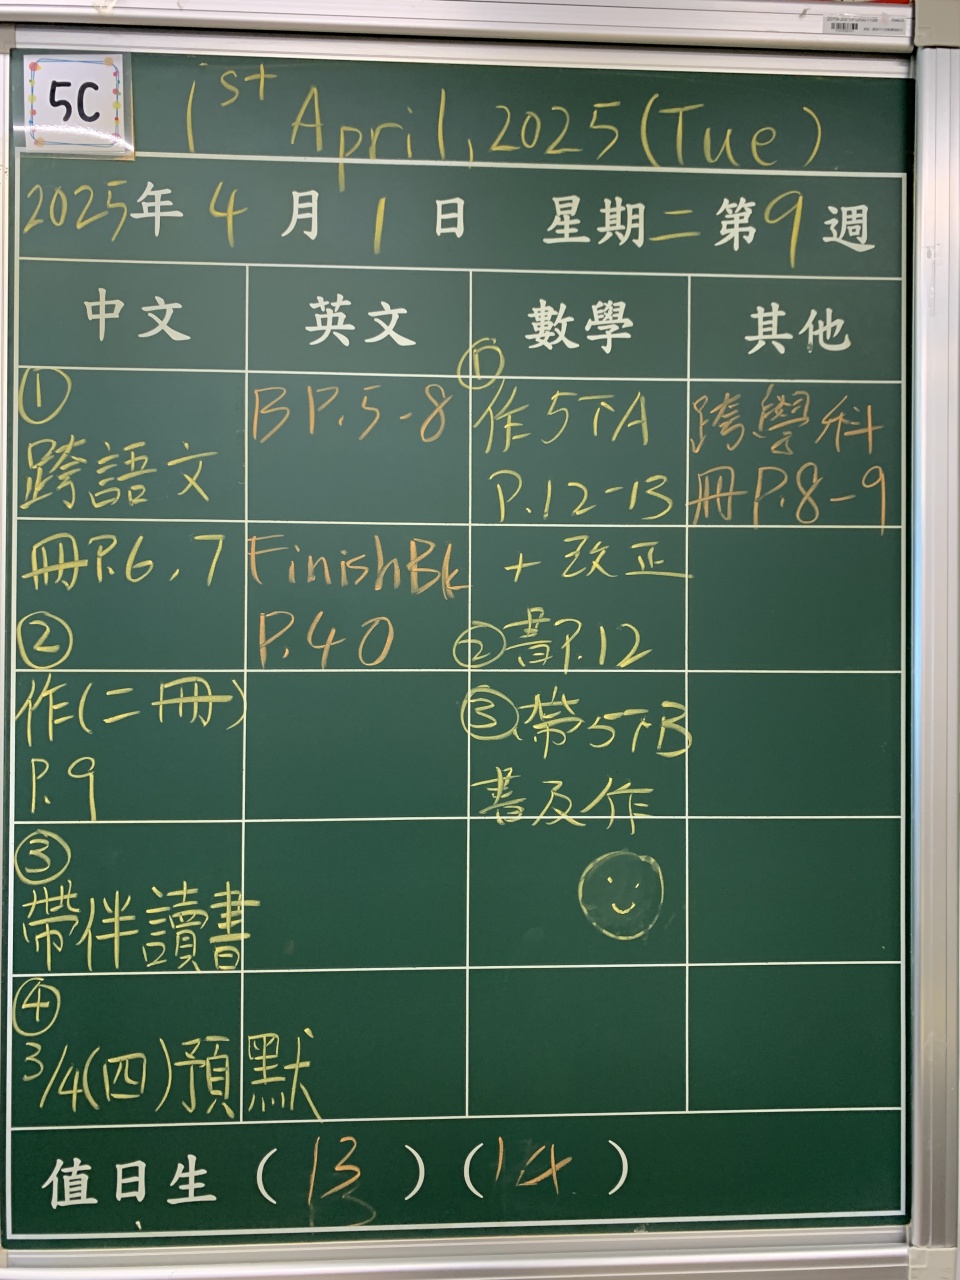 5C
1st April, 2025 (Tue)
2025年4月1日 星期二 第9週
中文
英文
數學
其他
①
跨語文
冊P.6,7
②
作(二冊)
P.9
③
帶伴讀書
④
3/4(四)預默
BP.5-8
Finish Bk
P.40
①
作5下A
P.12-13
+改正
②書P.12
③帶5下B
書及作
跨學科
冊P.8-9
值日生(13)(14)